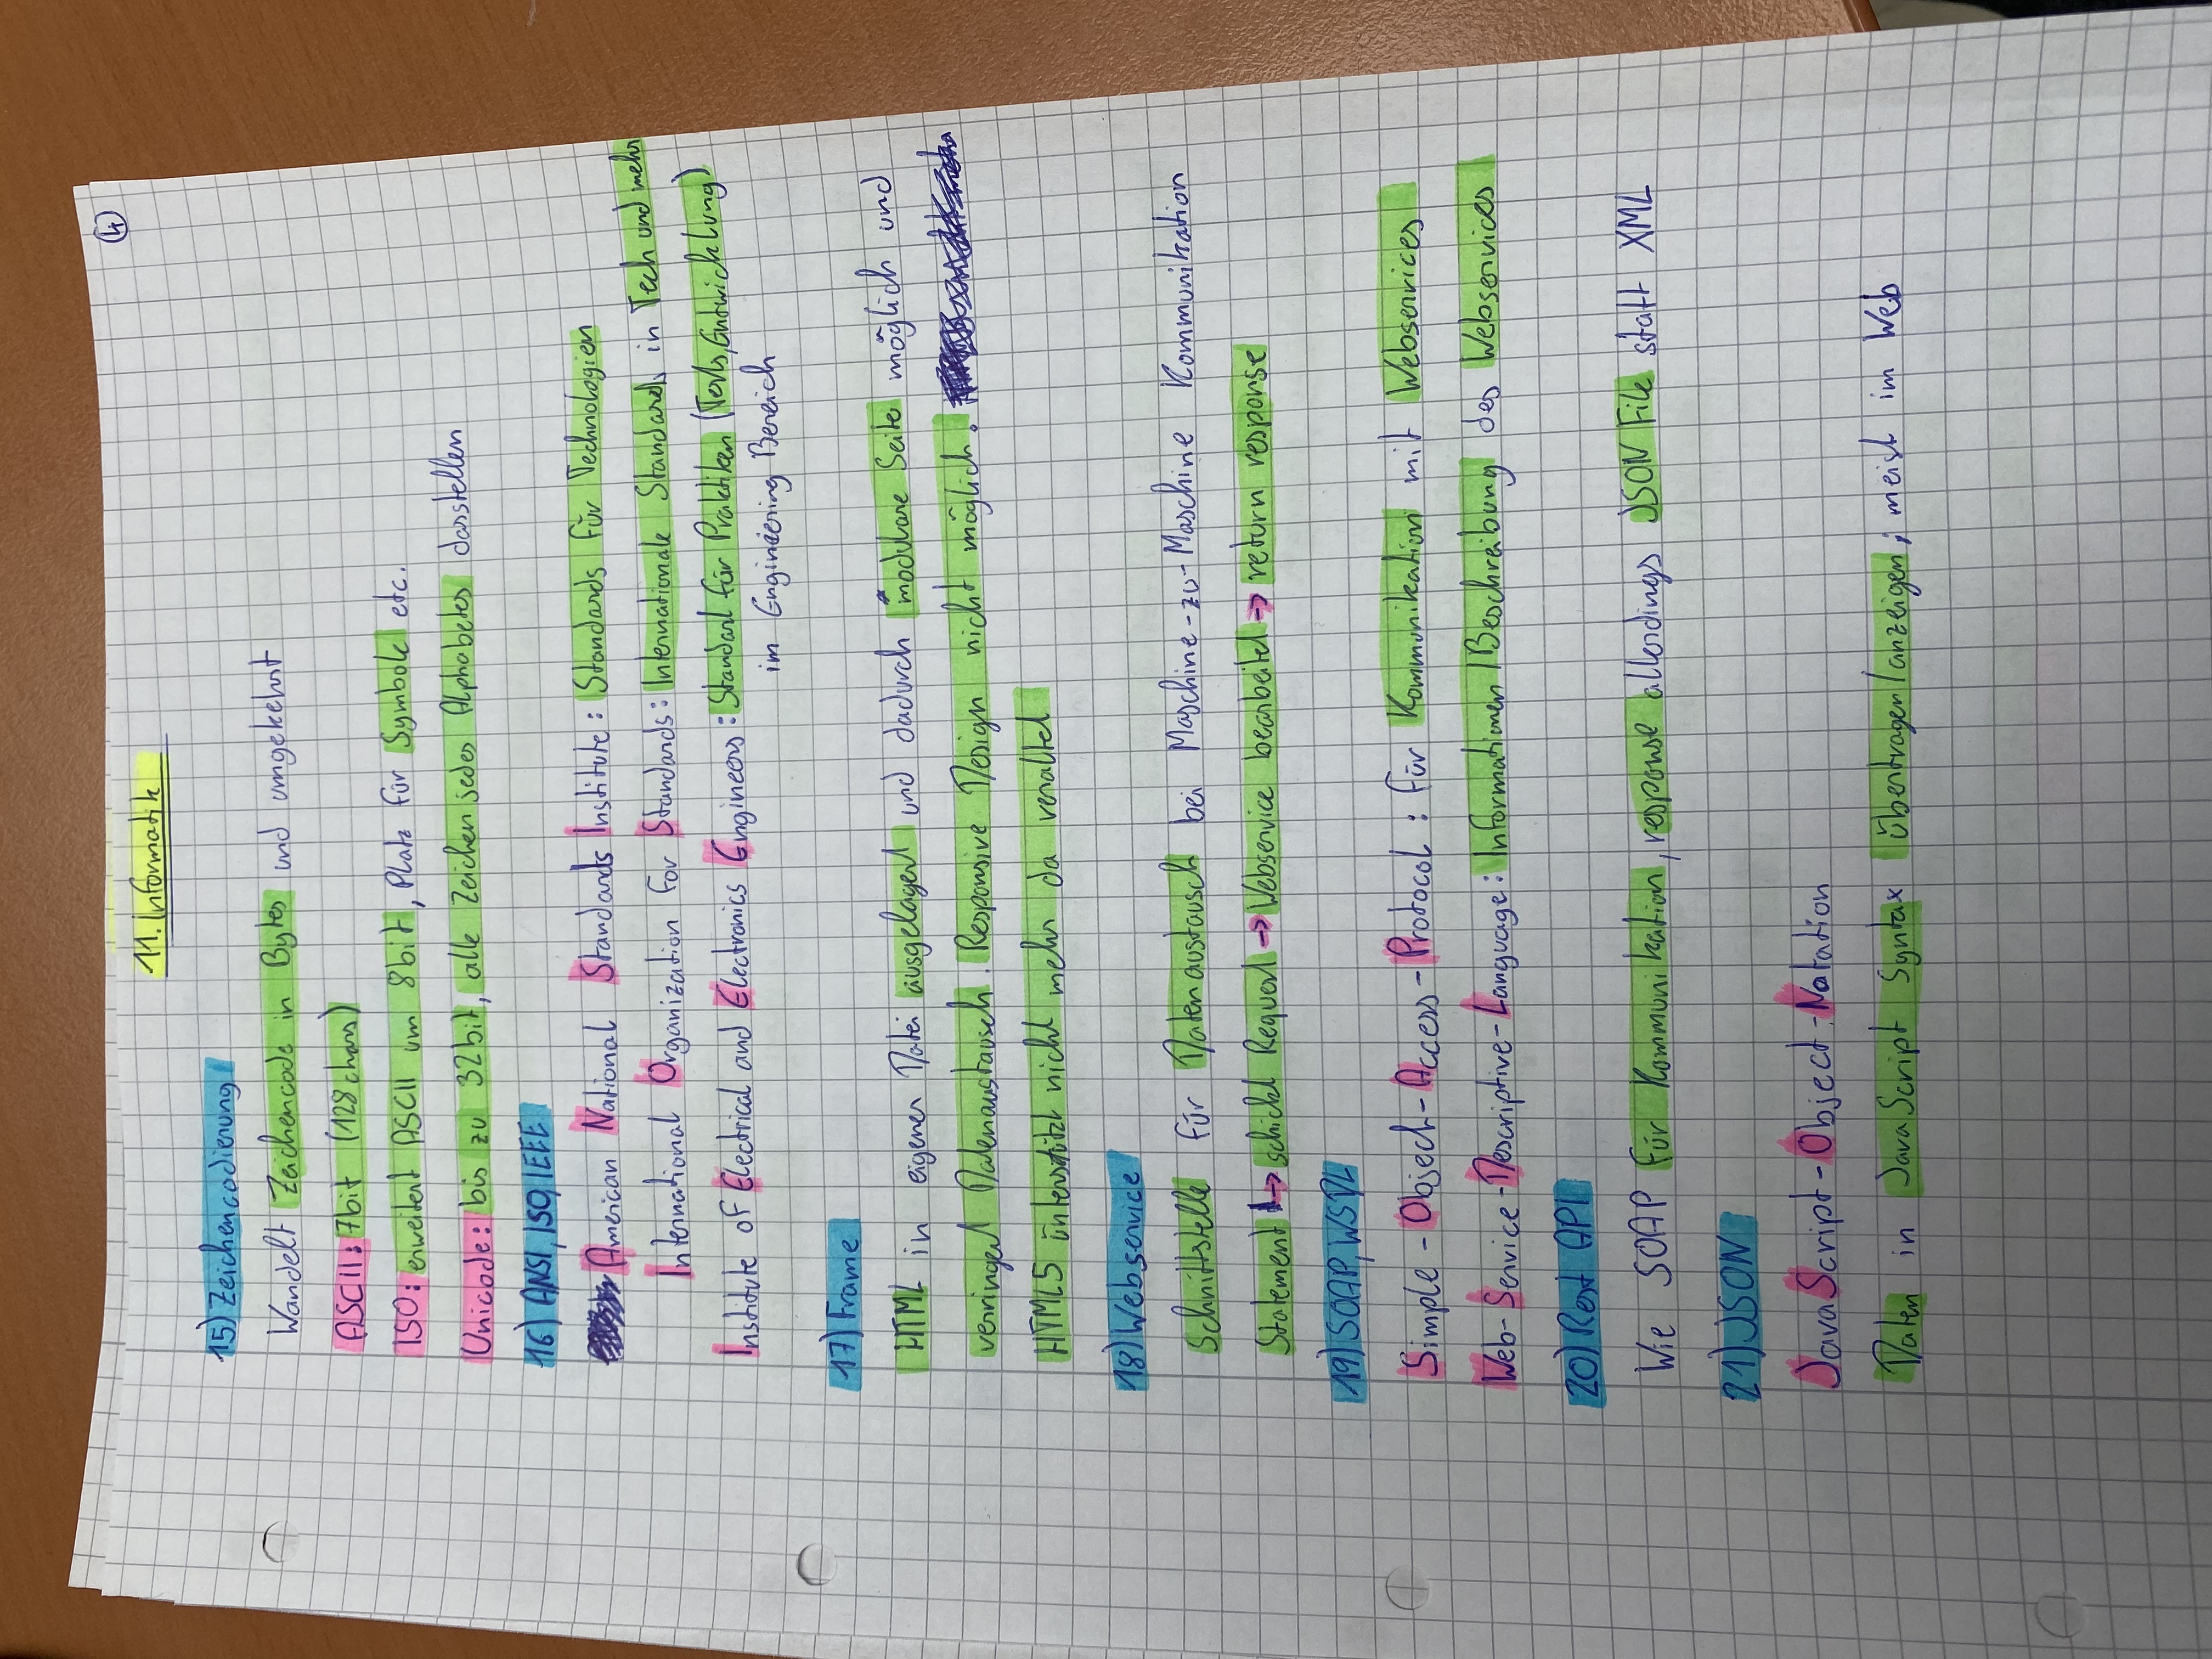 4
11. Informatik
15) Zeichencodierung
Wandelt Zeichencode in Bytes und umgekehrt
ASCII: 7bit (128 chars)
ISO: erweitert ASCII um 8bit, Platz für Symbole etc.
Unicode: bis zu 32bit, alle Zeichen jedes Alphabetes darstellen
16) ANSI, ISO, IEEE
American National Standards Institute: Standards für Technologien
International Organization for Standards: Internationale Standards in Tech und mehr
Institute of Electrical and Electronics Engineers: Standard für Praktiken (Tests, Entwicklung)
im Engineering Bereich
17) Frame
HTML in eigener Datei ausgelagert und dadurch modulare Seite möglich und
verringert Datenaustausch. Responsive Design nicht möglich.
HTML5 unterstützt nicht mehr da veraltet
18) Webservice
Schnittstelle für Datenaustausch bei Maschine-zu-Maschine Kommunikation
Statement → schickt Request → Webservice bearbeitet → return response
19) SOAP, WSDL
Simple-Object-Access-Protocol: für Kommunikation mit Webservices
Web-Service-Descriptive-Language: Informationen/Beschreibung des Webservices
20) Rest API
Wie SOAP für Kommunikation, response allerdings JSON File statt XML
21) JSON
JavaScript-Object-Notation
Daten in JavaScript Syntax übertragen/anzeigen; meist im Web